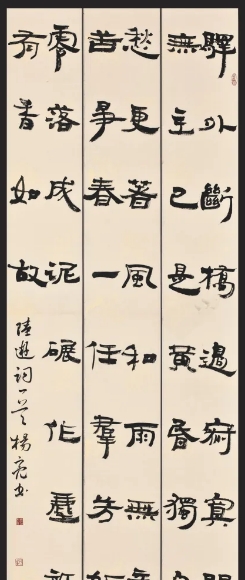 驛外斷橋邊寂寞
無主已是黃昏獨
愁更著風和雨無
苦爭春一任羣芳
零落成泥碾作塵
有香如故
陸遊詞一首楊亮書